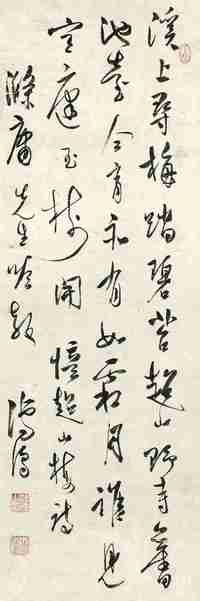 溪上尋梅踏碧苔超山野寺舊
池臺今宵亦有如霜月誰見
空庭玉樹開 憶超山梅詩
滌庸先生吟教